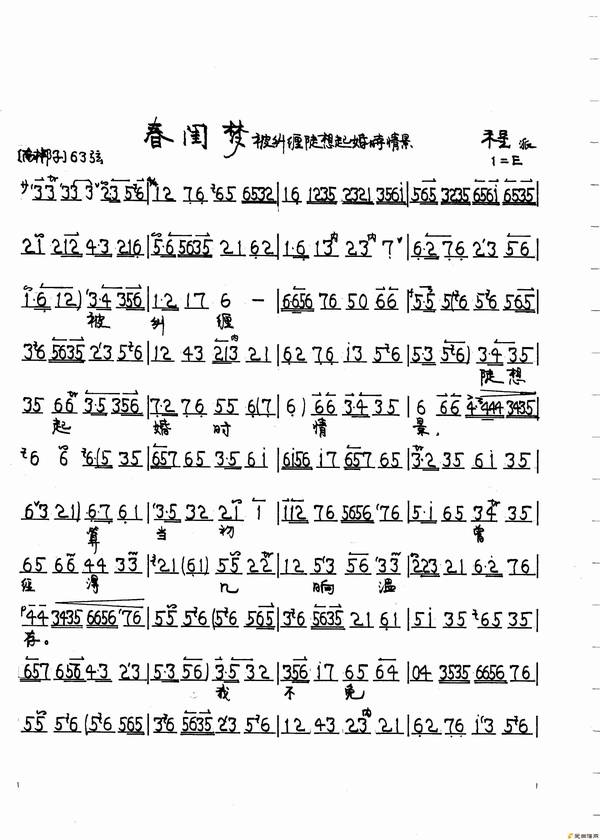 春闺梦 被纠缠陡想起婚时情景 程派
[南梆子] 63弦 1=E
33 33 3 23 56 | 12 76 65 6532 | 16 1235 2321 3561 | 565 3235 6561 6535 |
21 212 4·3 216 | 5·6 5635 21 62 | 1·6 13 23 7 | 6·2 76 23 56 |
1·6 12) 3·4 356 | 1·2 17 6 - | 6656 76 50 66 | 5·5 5(6 56 565 |
被 纠 缠
36 5635 23 56 | 12 43 213 21 | 62 76 13 56 | 5·3 56) 3·4 35 |
陡 想
35 66 3·5 356 | 7·2 76 55 6(7 | 6) 66 3·4 35 | 6 66 444 3435 |
起 婚 时 情 景，
6 6 6(5 35 | 657 65 3·5 61 | 6156 17 657 65 | 3·2 65 61 35 |
63 21) 6·7 61 | 3·5 32 21 1 | 112 76 5656 76 | 5·1 65 34 35 |
算 当 初 曾
65 66 44 33 | 21 (61) 55 22 | 12 53 56 33 | 223 21 6·2 76 |
经 得 几 晌 温
44 3435 6656 76 | 55 56 (56 565 | 36 5635 21 61 | 51 35 65 35 |
存。
657 656 4·3 23 | 5·3 56) 3·5 32 | 356 17 65 64 | 04 3535 6656 76 |
我 不 免
55 56 (56 565 | 36 5635 23 56 | 12 43 23 21 | 62 76 13 56 |